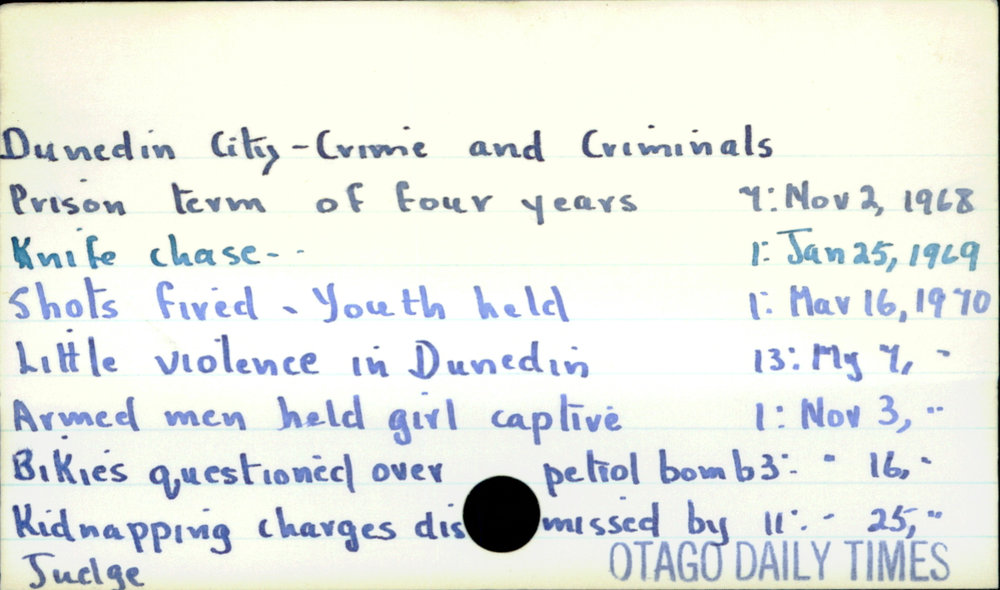 Dunedin City - Crime and Criminals
Prison term of four years 7: Nov 2, 1968
Knife chase - - 1: Jan 25, 1969
Shots fired - Youth held 1: Mar 16, 1970
Little violence in Dunedin 13: My 7, -
Armed men held girl captive 1: Nov 3, --
Bikies questioned over petrol bomb 3: - 16, -
Kidnapping charges dismissed by 11: - 25, --
Judge
OTAGO DAILY TIMES